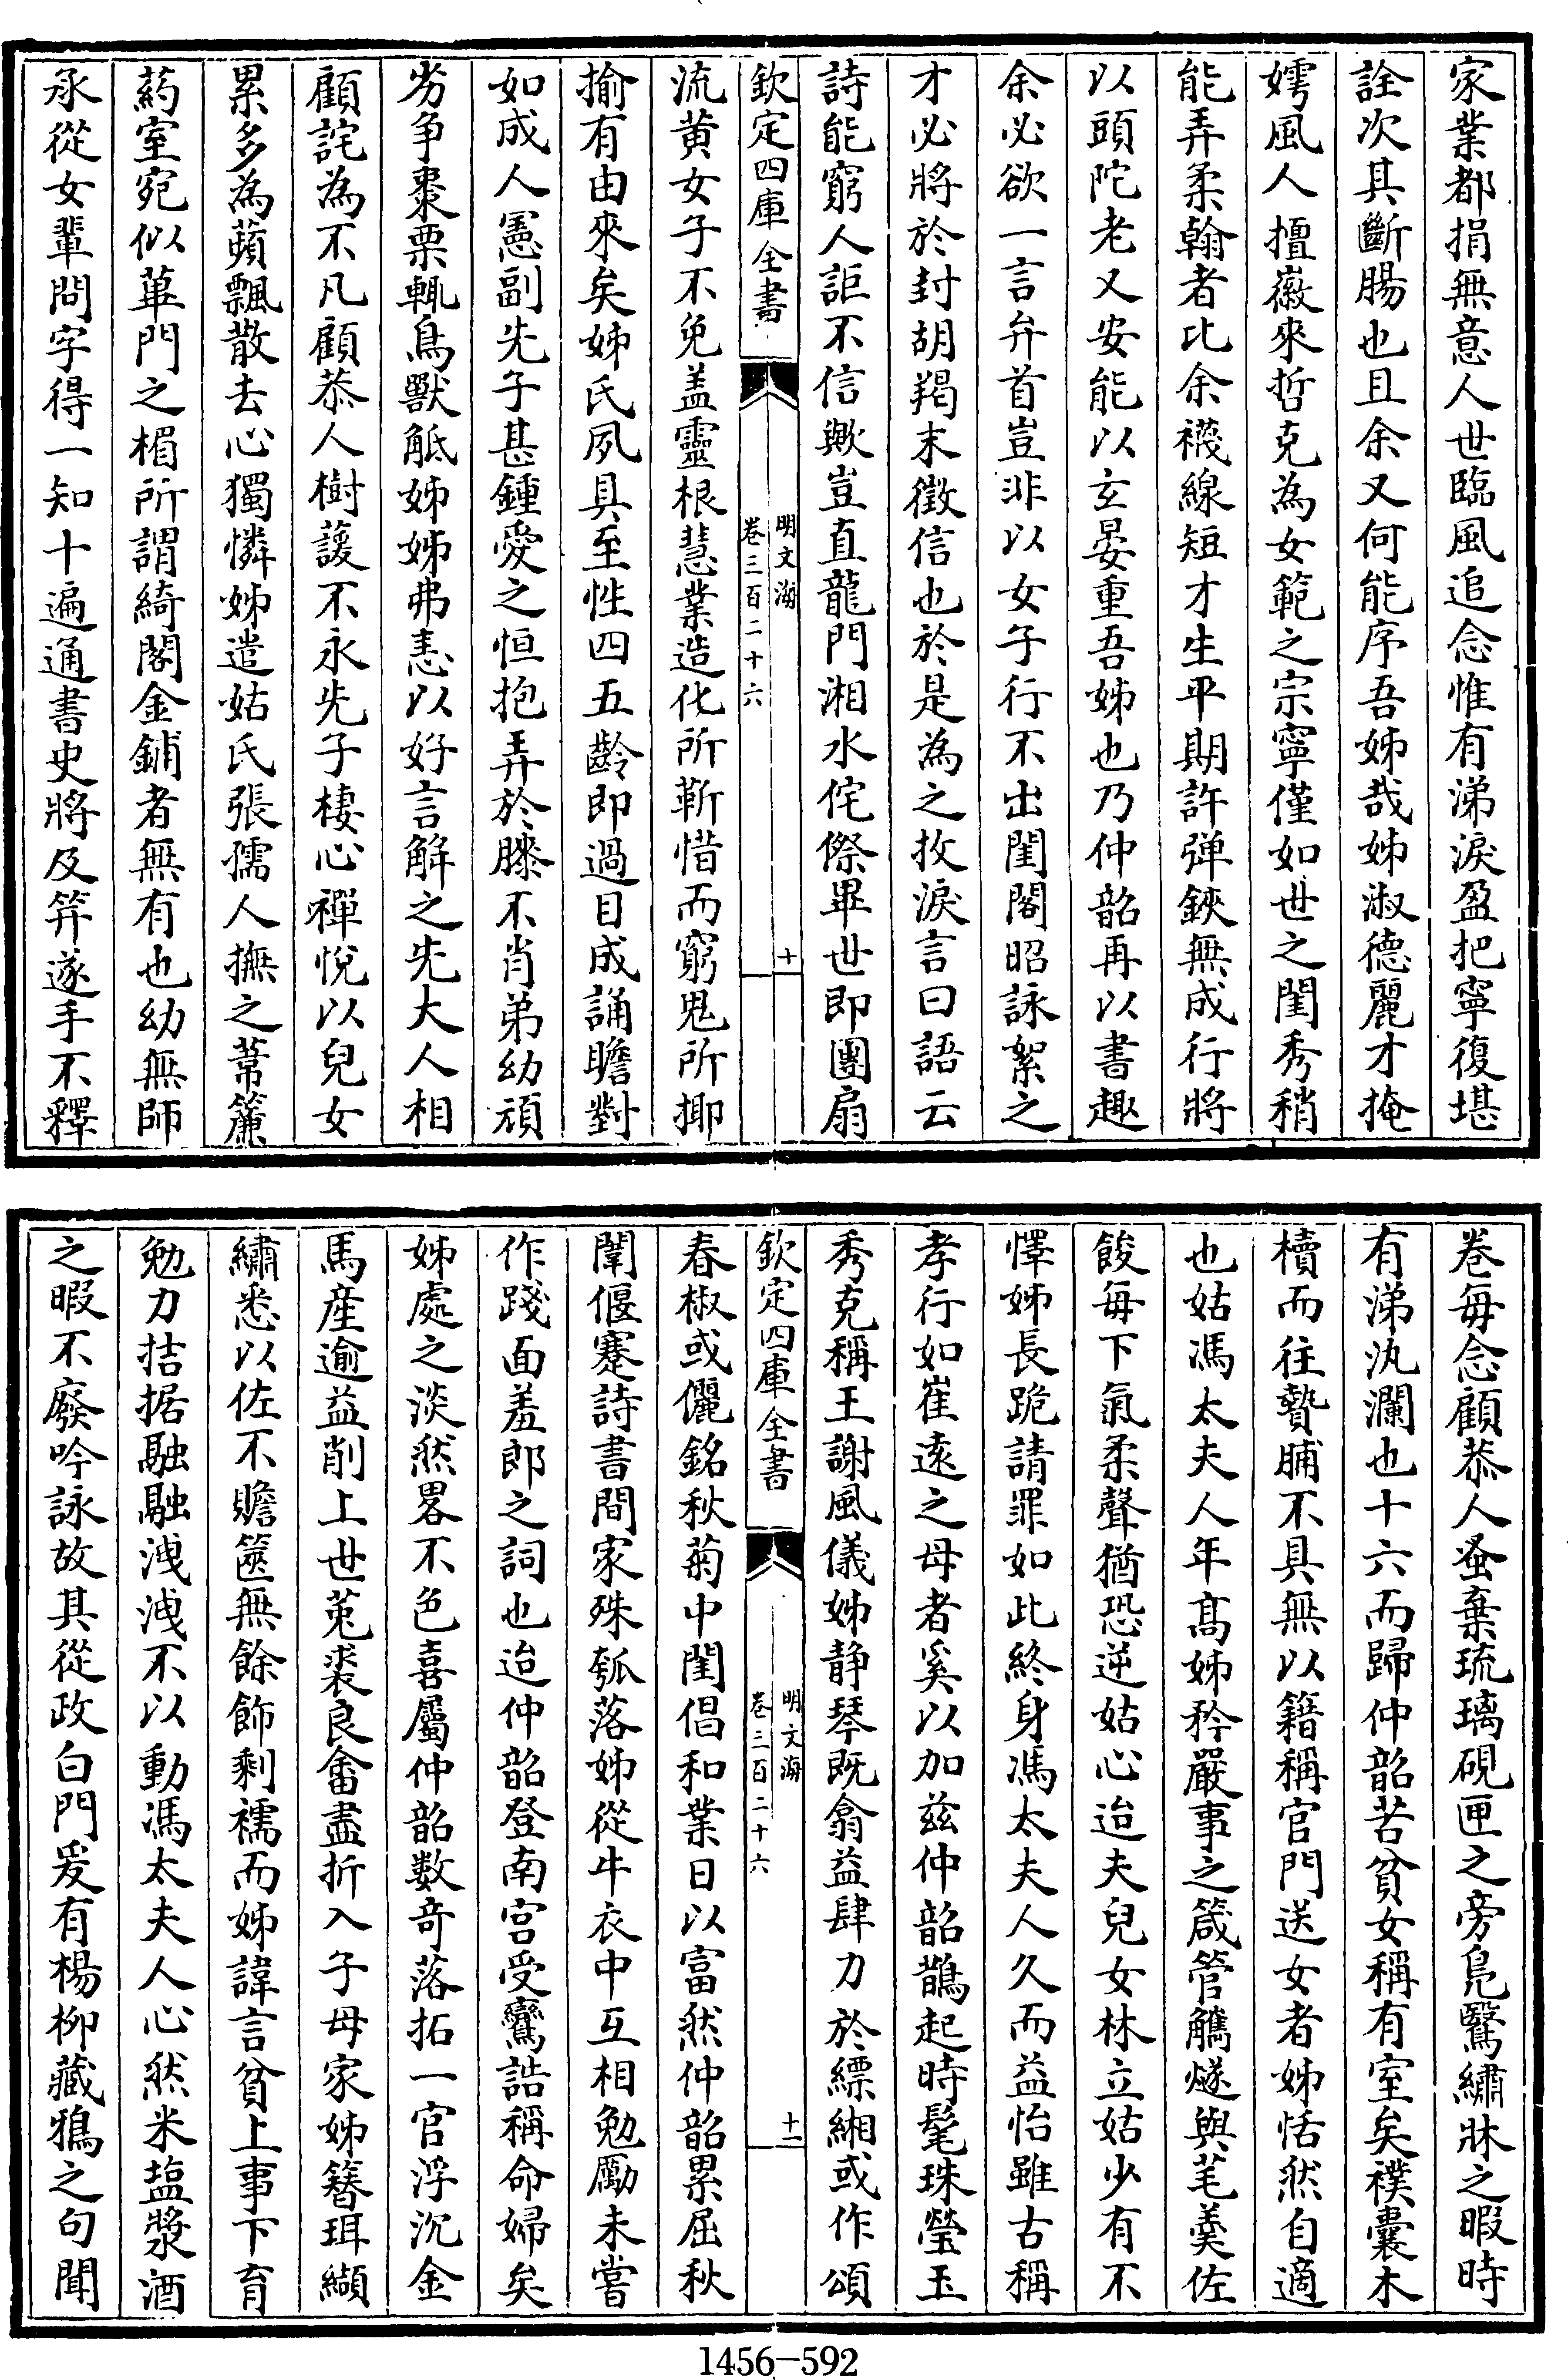 家業都捐無意人世臨風追念惟有涕淚盈把寧復堪
詮次其斷腸也且余又何能序吾姊哉姊淑德麗才掩
嫮風人擅徽來哲克為女範之宗寧僅如世之閨秀稍
能弄柔翰者比余襪線短才生平期許弹鋏無成行將
以頭陀老又安能以玄晏重吾姊也乃仲韶再以書趣
余必欲一言弁首豈非以女子行不出閨閣昭詠絮之
才必將於封胡羯末徵信也於是為之抆淚言曰語云
詩能窮人詎不信歟豈直龍門湘水侘傺畢世即團扇
欽定四庫全書
明文海
卷三百二十六
十
流黄女子不免盖靈根慧業造化所靳惜而窮鬼所揶
揄有由來矣姊氏夙具至性四五齡即過目成誦瞻對
如成人憲副先子甚鍾愛之恒抱弄於膝不肖弟幼頑
劣争棗栗輒鳥獸觝姊姊弗恚以好言解之先大人相
顧詫為不凡顧恭人樹諼不永先子棲心禪悅以兒女
累多為蘋飄散去心獨憐姊遣姑氏張孺人撫之葦簾
葯室宛似蓽門之楣所謂綺閣金鋪者無有也幼無師
承從女輩問字得一知十遍通書史將及筓遂手不釋
卷每念顧恭人蚤棄琉璃硯匣之旁鳬鷖繡牀之暇時
有涕汍瀾也十六而歸仲韶苦貧女稱有室矣襆囊木
櫝而往贄脯不具無以籍稱官門送女者姊恬然自適
也姑馮太夫人年髙姊矜嚴事之箴管觿燧與芼羮佐
餕每下氣柔聲猶恐逆姑心迨夫兒女林立姑少有不
懌姊長跪請罪如此終身馮太夫人久而益怡雖古稱
孝行如崔逺之母者奚以加兹仲韶鵲起時髦珠瑩玉
秀克稱王謝風儀姊静琴既翕益肆力於縹緗或作頌
欽定四庫全書
明文海
卷三百二十六
十一
春椒或儷銘秋菊中閨倡和業日以富然仲韶累屈秋
闈偃蹇詩書間家殊瓠落姊從牛衣中互相勉勵未嘗
作踐面羞郎之詞也迨仲韶登南宫受鸞誥稱命婦矣
姊處之淡然畧不色喜屬仲韶數竒落拓一官浮沉金
馬産逾益削上世菟裘良畬盡折入子母家姊簪珥纈
繡悉以佐不贍篋無餘飾剩襦而姊諱言貧上事下育
勉力拮据融融洩洩不以動馮太夫人心然米塩漿酒
之暇不廢吟詠故其從政白門爰有楊柳藏鴉之句聞
1456-592